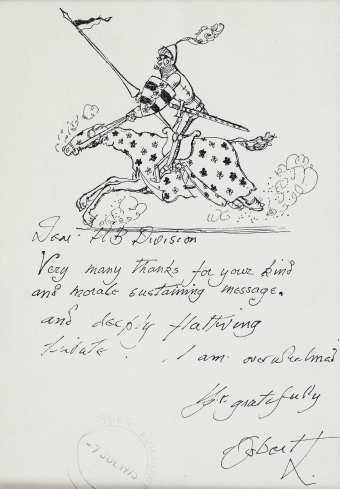 Dear HB Division
Very many thanks for your kind
and morale sustaining message.
and deeply flattring
tribute. I am overwhelmed
Yr. gratefully
Osbert
7 JUL 1975